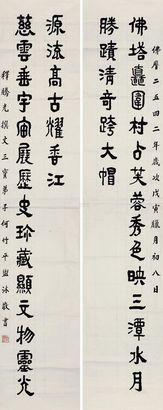 佛曆二五四二年歲次戊寅臘月初八日
佛塔邊圍村占芙蓉秀色映三潭水月
勝蹟清奇跨大帽
源流高古耀香江
慈雲垂宇宙展歷史珍藏顯文物靈光
釋騰光撰文三寶弟子何竹平盥沐敬書